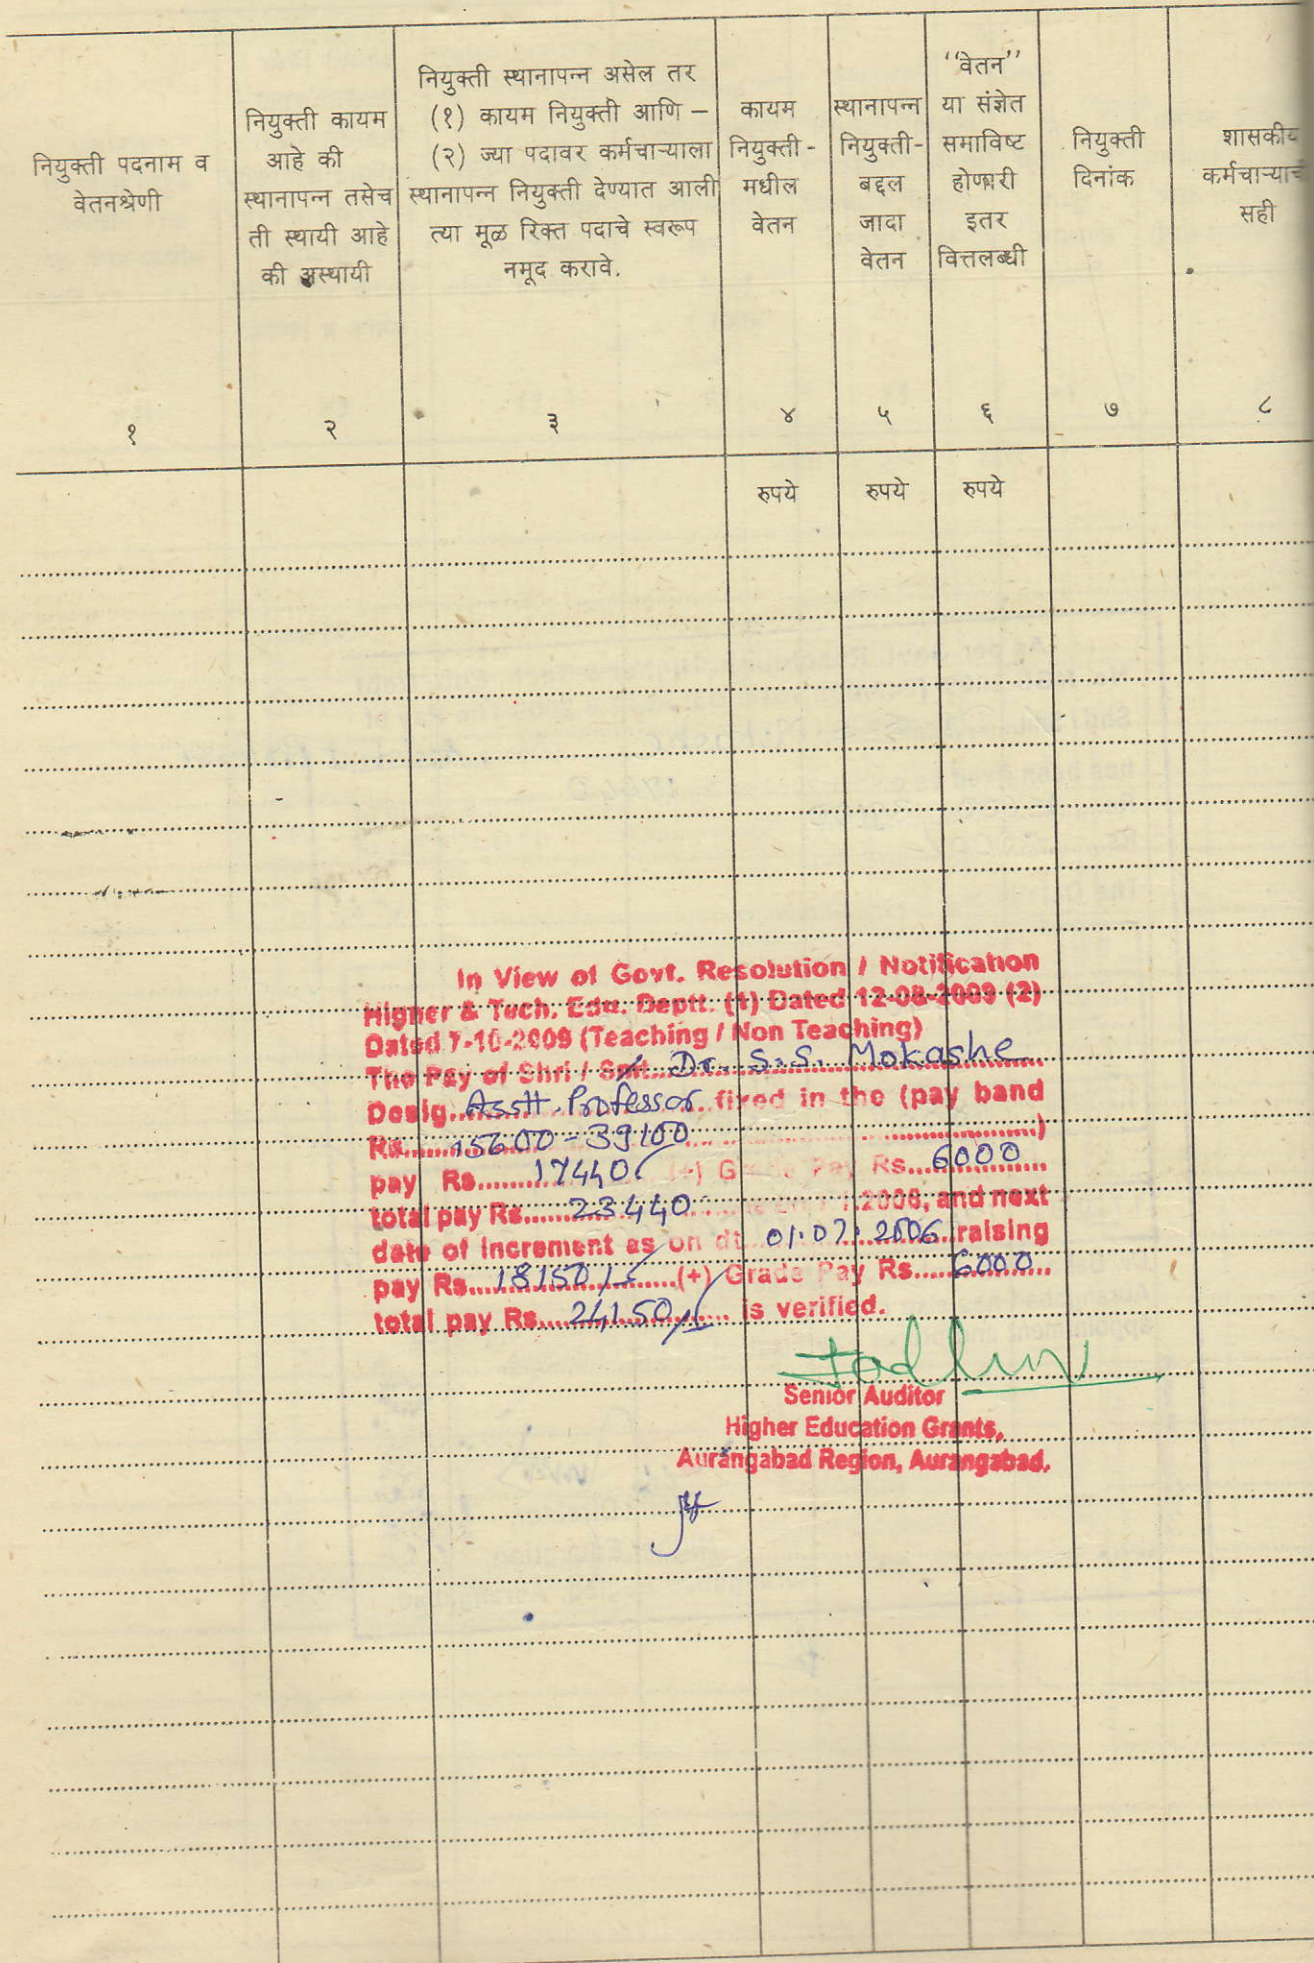 नियुक्ती पदनाम व
वेतनश्रेणी
नियुक्ती कायम
आहे की
स्थानापन्न तसेच
ती स्थायी आहे
की अस्थायी
नियुक्ती स्थानापन्न असेल तर
(१) कायम नियुक्ती आणि –
(२) ज्या पदावर कर्मचाऱ्याला
स्थानापन्न नियुक्ती देण्यात आली
त्या मूळ रिक्त पदाचे स्वरूप
नमूद करावे.
कायम
नियुक्ती -
मधील
वेतन
स्थानापन्न
नियुक्ती-
बद्दल
जादा
वेतन
''वेतन''
या संज्ञेत
समाविष्ट
होणारी
इतर
वित्तलब्धी
नियुक्ती
दिनांक
शासकीय
कर्मचाऱ्याची
सही
१ २ ३ ४ ५ ६ ७ ८
रुपये रुपये रुपये
In View of Govt. Resolution / Notification
Higher & Tech. Edu. Deptt. (1) Dated 12-08-2009 (2)
Dated 7-10-2009 (Teaching / Non Teaching)
The Pay of Shri / Smt. Dr. S.S. Mokashe
Desig. Asstt. Professor fixed in the (pay band
Rs. 15600 - 39100 )
pay Rs. 17440/ (+) Grade Pay Rs. 6000
total pay Rs. 23440 1.2006, and next
date of increment as on dt. 01.07.2006 raising
pay Rs. 18150/- (+) Grade Pay Rs. 6000
total pay Rs. 24150/- is verified.
Senior Auditor
Higher Education Grants,
Aurangabad Region, Aurangabad.